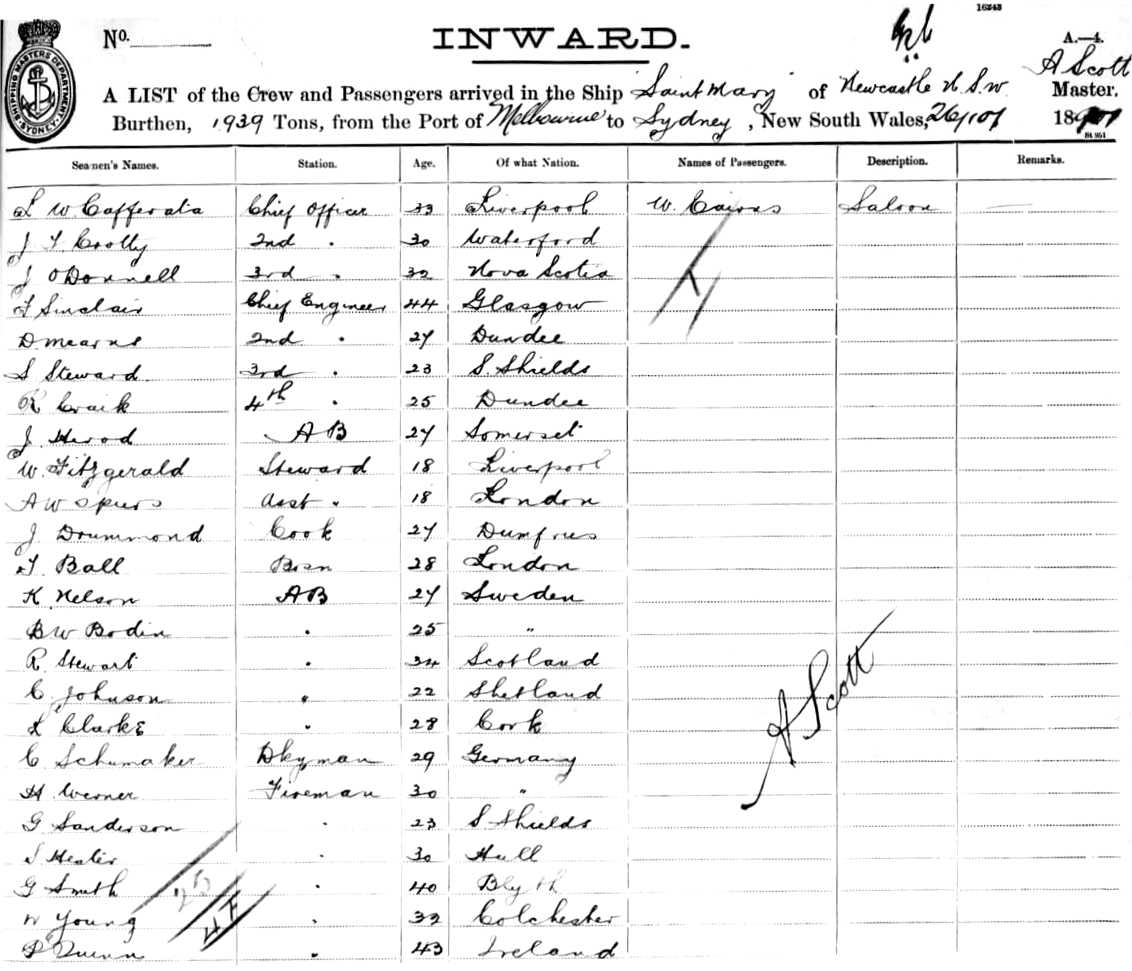 16243
No.
INWARD.
A.—4.
A Scott
A LIST of the Crew and Passengers arrived in the Ship Saint Mary of Newcastle N.S.W. Master,
Burthen, 1939 Tons, from the Port of Melbourne to Sydney, New South Wales, 26/1/01 18
SHIPPING MASTERS DEPARTMENT SYDNEY
Seamen's Names. Station. Age. Of what Nation. Names of Passengers. Description. Remarks.
L W Cafferata Chief Officer 33 Liverpool W. Cairns Saloon
J T Crotty 2nd " 30 Waterford
J O'Donnell 3rd " 32 Nova Scotia
T Sinclair Chief Engineer 44 Glasgow
D Mearns 2nd " 27 Dundee
S Steward 3rd " 23 S. Shields
R Craik 4th " 25 Dundee
J. Herod AB 27 Somerset
W. Fitzgerald Steward 18 Liverpool
A W Spiers Asst " 18 London
J. Drummond Cook 27 Dumfries
T. Ball Bosn 28 London
K Nelson AB 27 Sweden
B W Bodin " 25 "
R. Stewart " 34 Scotland
C. Johnson " 22 Shetland
L Clarke " 28 Cork
C Schumaker Dkyman 29 Germany
H Werner Fireman 30 "
G Sanderson " 23 S Shields
S Hester " 30 Hull
G Smith " 40 Blyth
W Young " 32 Colchester
P Quinn " 43 Ireland
A Scott
25